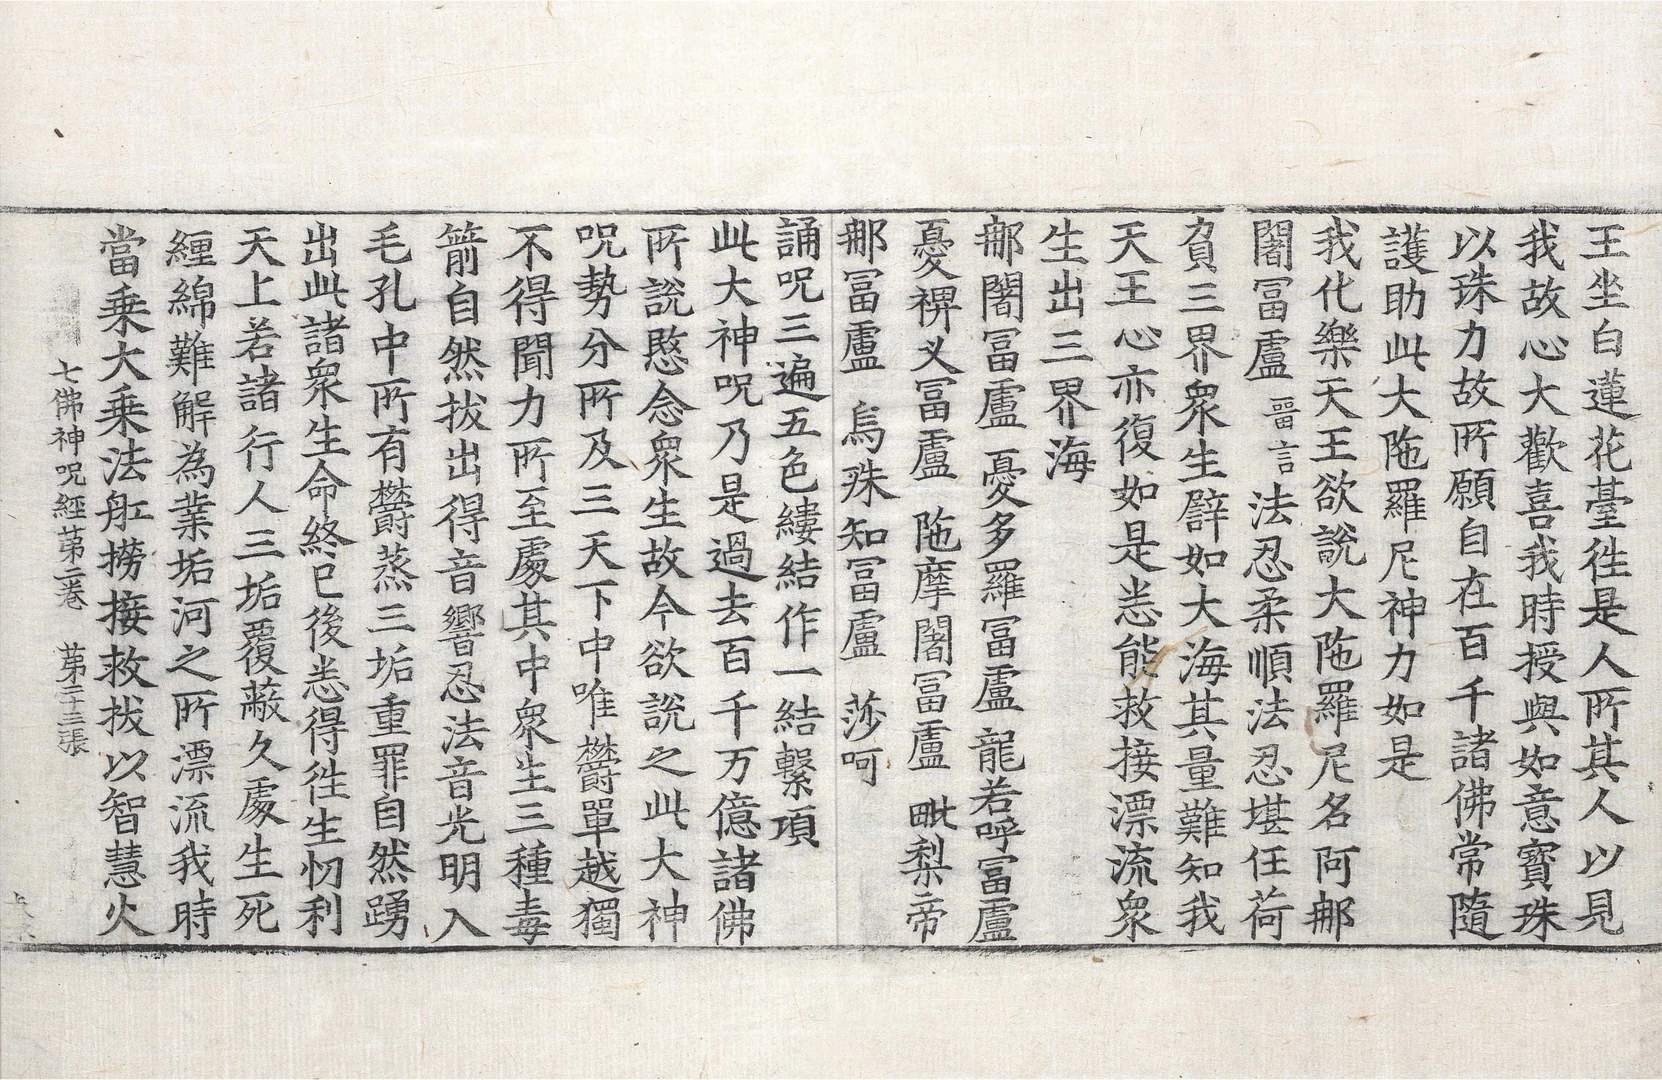 王坐白蓮花臺往是人所其人以見
我故心大歡喜我時授與如意寶珠
以珠力故所願自在百千諸佛常隨
護助此大陁羅尼神力如是
我化樂天王欲說大陁羅尼名阿那
闍冨盧 晉言 法忍柔順法忍堪任荷
負三界衆生譬如大海其量難知我
天王心亦復如是悉能救接漂流衆
生出三界海
那闍冨盧 憂多羅冨盧 龍若呼冨盧
憂禅义冨盧 陁摩闍冨盧 毗梨帝
那冨盧 烏殊知冨盧 莎呵
誦呪三遍五色縷結作一結繫項
此大神呪乃是過去百千万億諸佛
所說愍念衆生故今欲說之此大神
呪勢分所及三天下中唯欝單越獨
不得聞力所至處其中衆生三種毒
箭自然拔出得音響忍法音光明入
毛孔中所有欝蒸三垢重罪自然踊
出此諸衆生命終已後悉得往生忉利
天上若諸行人三垢覆蔽久處生死
纏綿難解為業垢河之所漂流我時
當乗大乗法舡撈接救拔以智慧火
七佛神呪經苐二卷 苐二十三張